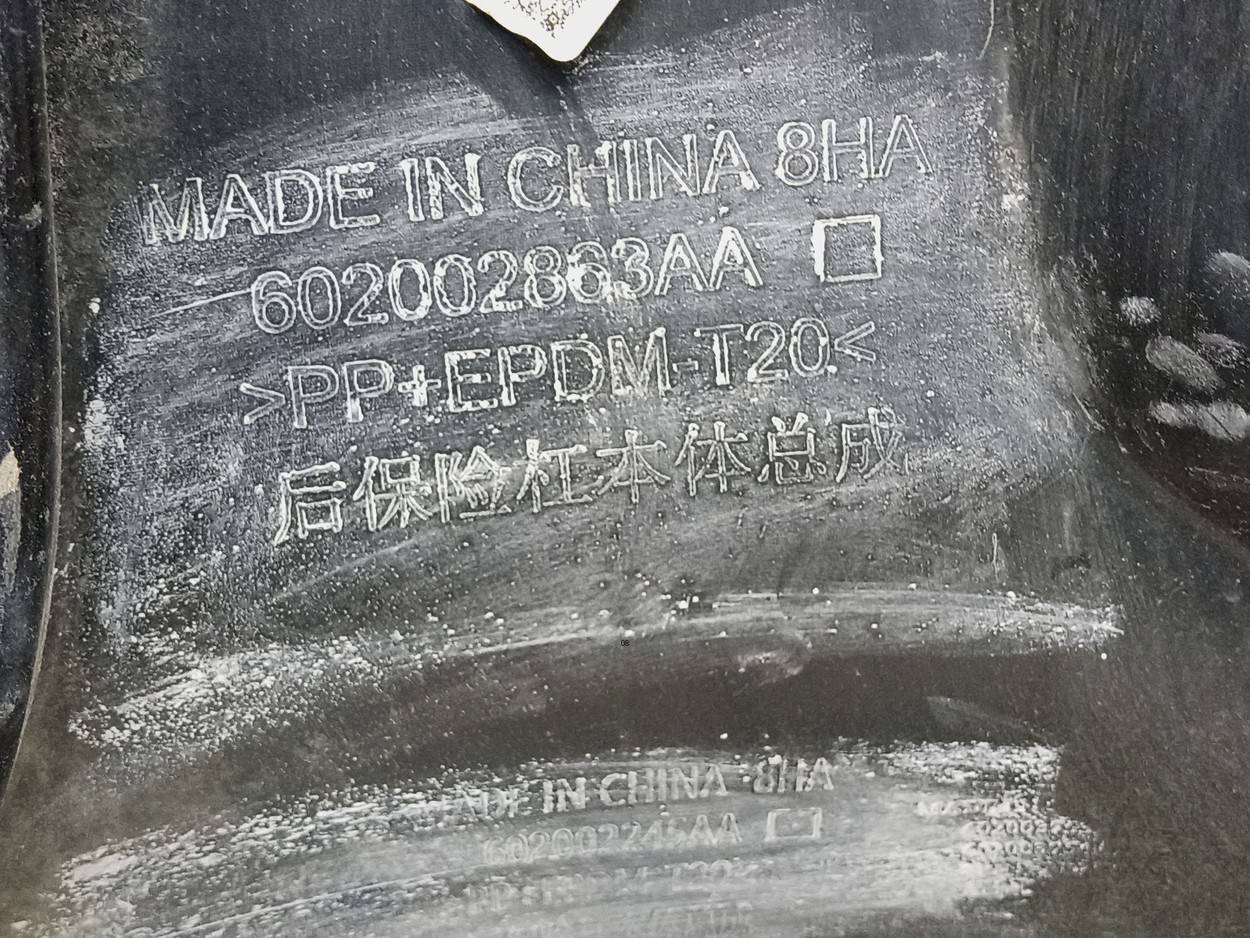 MADE IN CHINA 8HA
602002863AA
>PP+EPDM-T20<
后保险杠本体总成
MADE IN CHINA 8HA
602002245AA